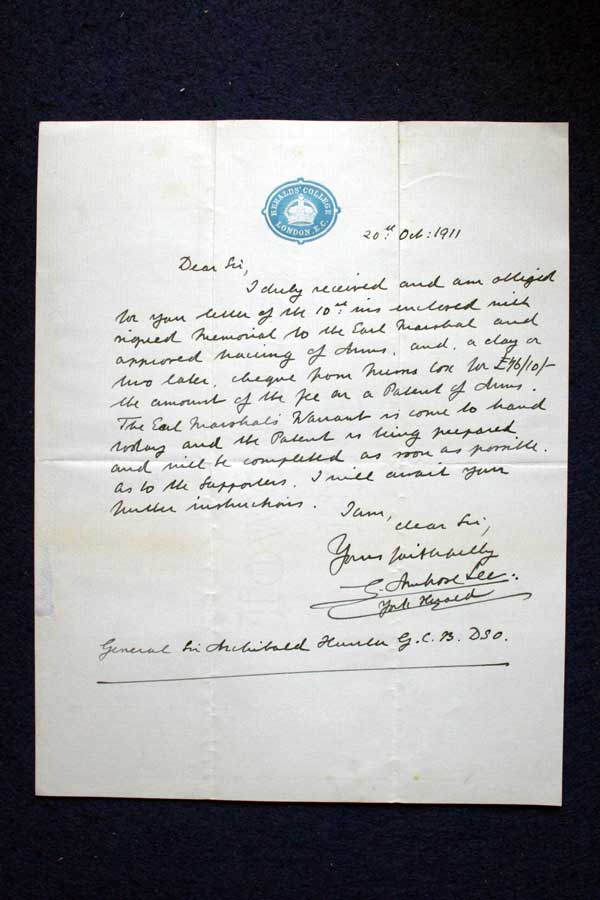 HERALDS' COLLEGE
LONDON. E.C.
20th Oct: 1911
Dear Sir,
I duly received and am obliged
for your letter of the 10th ins enclosed with
signed Memorial to the Earl Marshal and
approved tracing of Arms, and, a day or
two later, cheque from Messrs Cox for £76/10/-
the amount of the fee on a Patent of Arms.
The Earl Marshal's Warrant is come to hand
today and the Patent is being prepared
and will be completed as soon as possible.
as to the Supporters, I will await your
further instructions.
I am,
dear Sir,
Yours faithfully
G. Ambrose Lee.
York Herald
General Sir Archibald Hunter G.C.B. DSO.